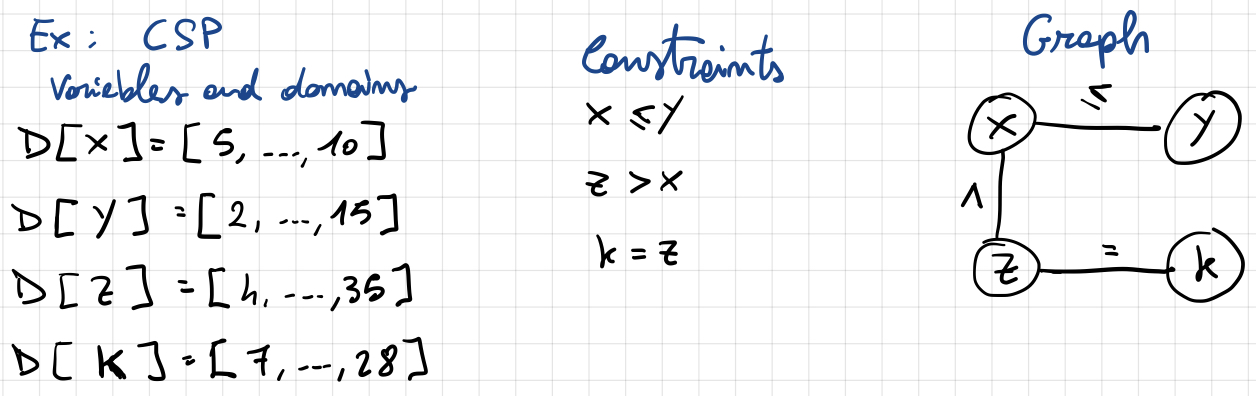 Ex: CSP
Variables and domains
D[x] = [5, ..., 10]
D[y] = [2, ..., 15]
D[z] = [4, ..., 35]
D[K] = [7, ..., 28]
Constraints
x ≤ y
z > x
k = z
Graph
x ≤ y
∧
z = k